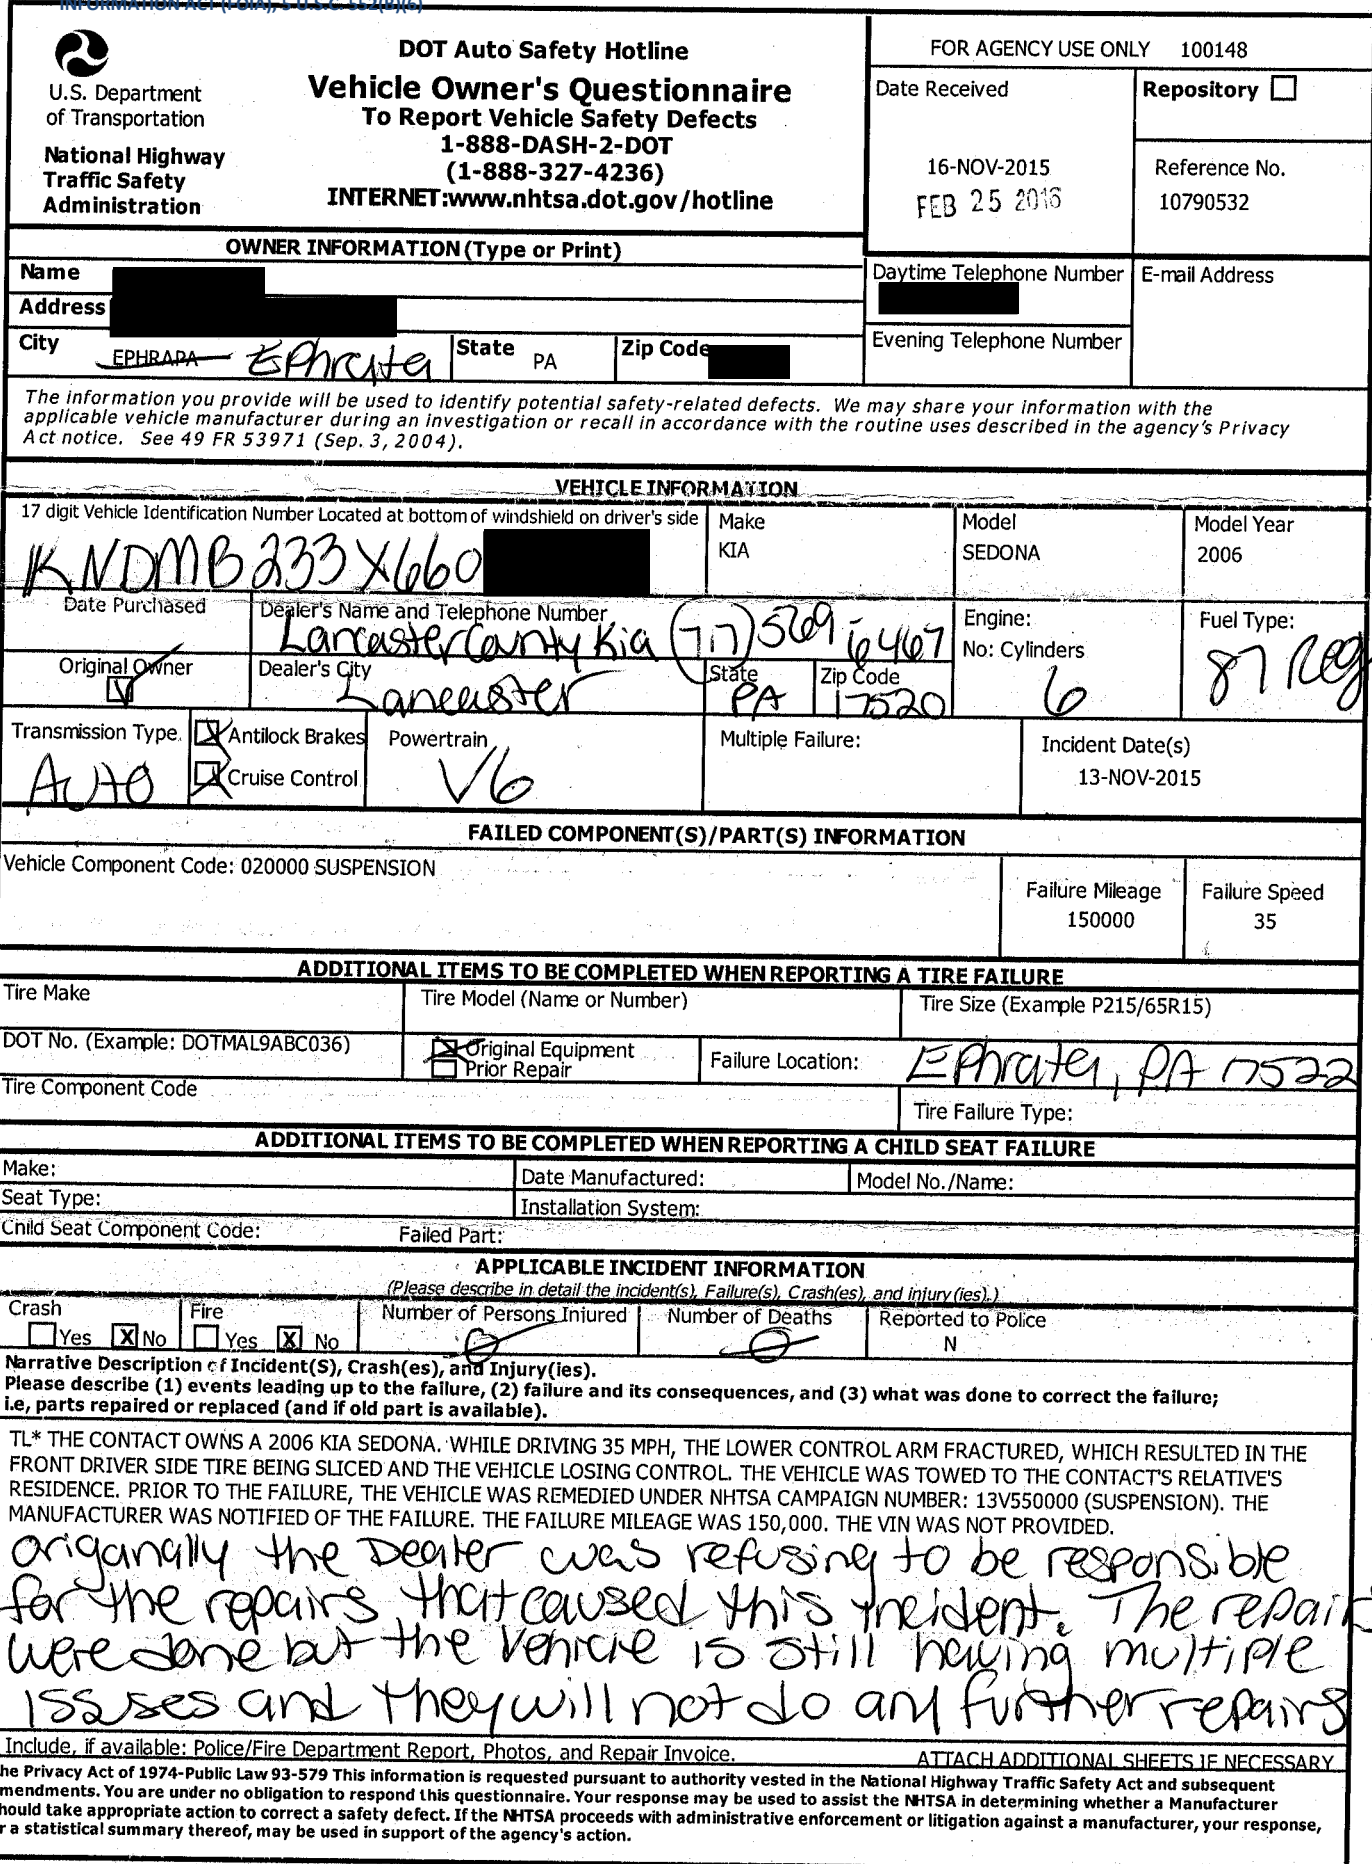 INFORMATION ACT (FOIA), 5 U.S.C. 552(B)(6)
U.S. Department
of Transportation
National Highway
Traffic Safety
Administration
DOT Auto Safety Hotline
Vehicle Owner's Questionnaire
To Report Vehicle Safety Defects
1-888-DASH-2-DOT
(1-888-327-4236)
INTERNET:www.nhtsa.dot.gov/hotline
FOR AGENCY USE ONLY 100148
Date Received
16-NOV-2015
FEB 25 2016
Repository
Reference No.
10790532
OWNER INFORMATION (Type or Print)
Name
Address
City EPHRAPA Ephrata State PA Zip Code
Daytime Telephone Number
E-mail Address
Evening Telephone Number
The information you provide will be used to identify potential safety-related defects. We may share your information with the
applicable vehicle manufacturer during an investigation or recall in accordance with the routine uses described in the agency's Privacy
Act notice. See 49 FR 53971 (Sep. 3, 2004).
VEHICLE INFORMATION
17 digit Vehicle Identification Number Located at bottom of windshield on driver's side
KNDMB233X660
Make
KIA
Model
SEDONA
Model Year
2006
Date Purchased
Dealer's Name and Telephone Number
Lancaster County Kia (717) 569 6467
Engine:
No: Cylinders
6
Fuel Type:
87 Reg
Original Owner
Dealer's City
Lancaster
State
PA
Zip Code
17520
Transmission Type
Auto
X Antilock Brakes
X Cruise Control
Powertrain
V6
Multiple Failure:
Incident Date(s)
13-NOV-2015
FAILED COMPONENT(S)/PART(S) INFORMATION
Vehicle Component Code: 020000 SUSPENSION
Failure Mileage
150000
Failure Speed
35
ADDITIONAL ITEMS TO BE COMPLETED WHEN REPORTING A TIRE FAILURE
Tire Make
Tire Model (Name or Number)
Tire Size (Example P215/65R15)
DOT No. (Example: DOTMAL9ABC036)
X Original Equipment
Prior Repair
Failure Location: Ephrata, PA 17522
Tire Component Code
Tire Failure Type:
ADDITIONAL ITEMS TO BE COMPLETED WHEN REPORTING A CHILD SEAT FAILURE
Make:
Date Manufactured:
Model No./Name:
Seat Type:
Installation System:
Child Seat Component Code:
Failed Part:
APPLICABLE INCIDENT INFORMATION
(Please describe in detail the incident(s), Failure(s), Crash(es), and injury(ies).)
Crash
Yes X No
Fire
Yes X No
Number of Persons Injured
0
Number of Deaths
0
Reported to Police
N
Narrative Description of Incident(S), Crash(es), and Injury(ies).
Please describe (1) events leading up to the failure, (2) failure and its consequences, and (3) what was done to correct the failure;
i.e, parts repaired or replaced (and if old part is available).
TL* THE CONTACT OWNS A 2006 KIA SEDONA. WHILE DRIVING 35 MPH, THE LOWER CONTROL ARM FRACTURED, WHICH RESULTED IN THE
FRONT DRIVER SIDE TIRE BEING SLICED AND THE VEHICLE LOSING CONTROL. THE VEHICLE WAS TOWED TO THE CONTACT'S RELATIVE'S
RESIDENCE. PRIOR TO THE FAILURE, THE VEHICLE WAS REMEDIED UNDER NHTSA CAMPAIGN NUMBER: 13V550000 (SUSPENSION). THE
MANUFACTURER WAS NOTIFIED OF THE FAILURE. THE FAILURE MILEAGE WAS 150,000. THE VIN WAS NOT PROVIDED.
origanally the Dealer was refusing to be responsible
for the repairs that caused this incident. The repairs
were done but the vehicle is still having multiple
issues and they will not do any further repairs
Include, if available: Police/Fire Department Report, Photos, and Repair Invoice.
ATTACH ADDITIONAL SHEETS IF NECESSARY
he Privacy Act of 1974-Public Law 93-579 This information is requested pursuant to authority vested in the National Highway Traffic Safety Act and subsequent
mendments. You are under no obligation to respond this questionnaire. Your response may be used to assist the NHTSA in determining whether a Manufacturer
hould take appropriate action to correct a safety defect. If the NHTSA proceeds with administrative enforcement or litigation against a manufacturer, your response,
r a statistical summary thereof, may be used in support of the agency's action.